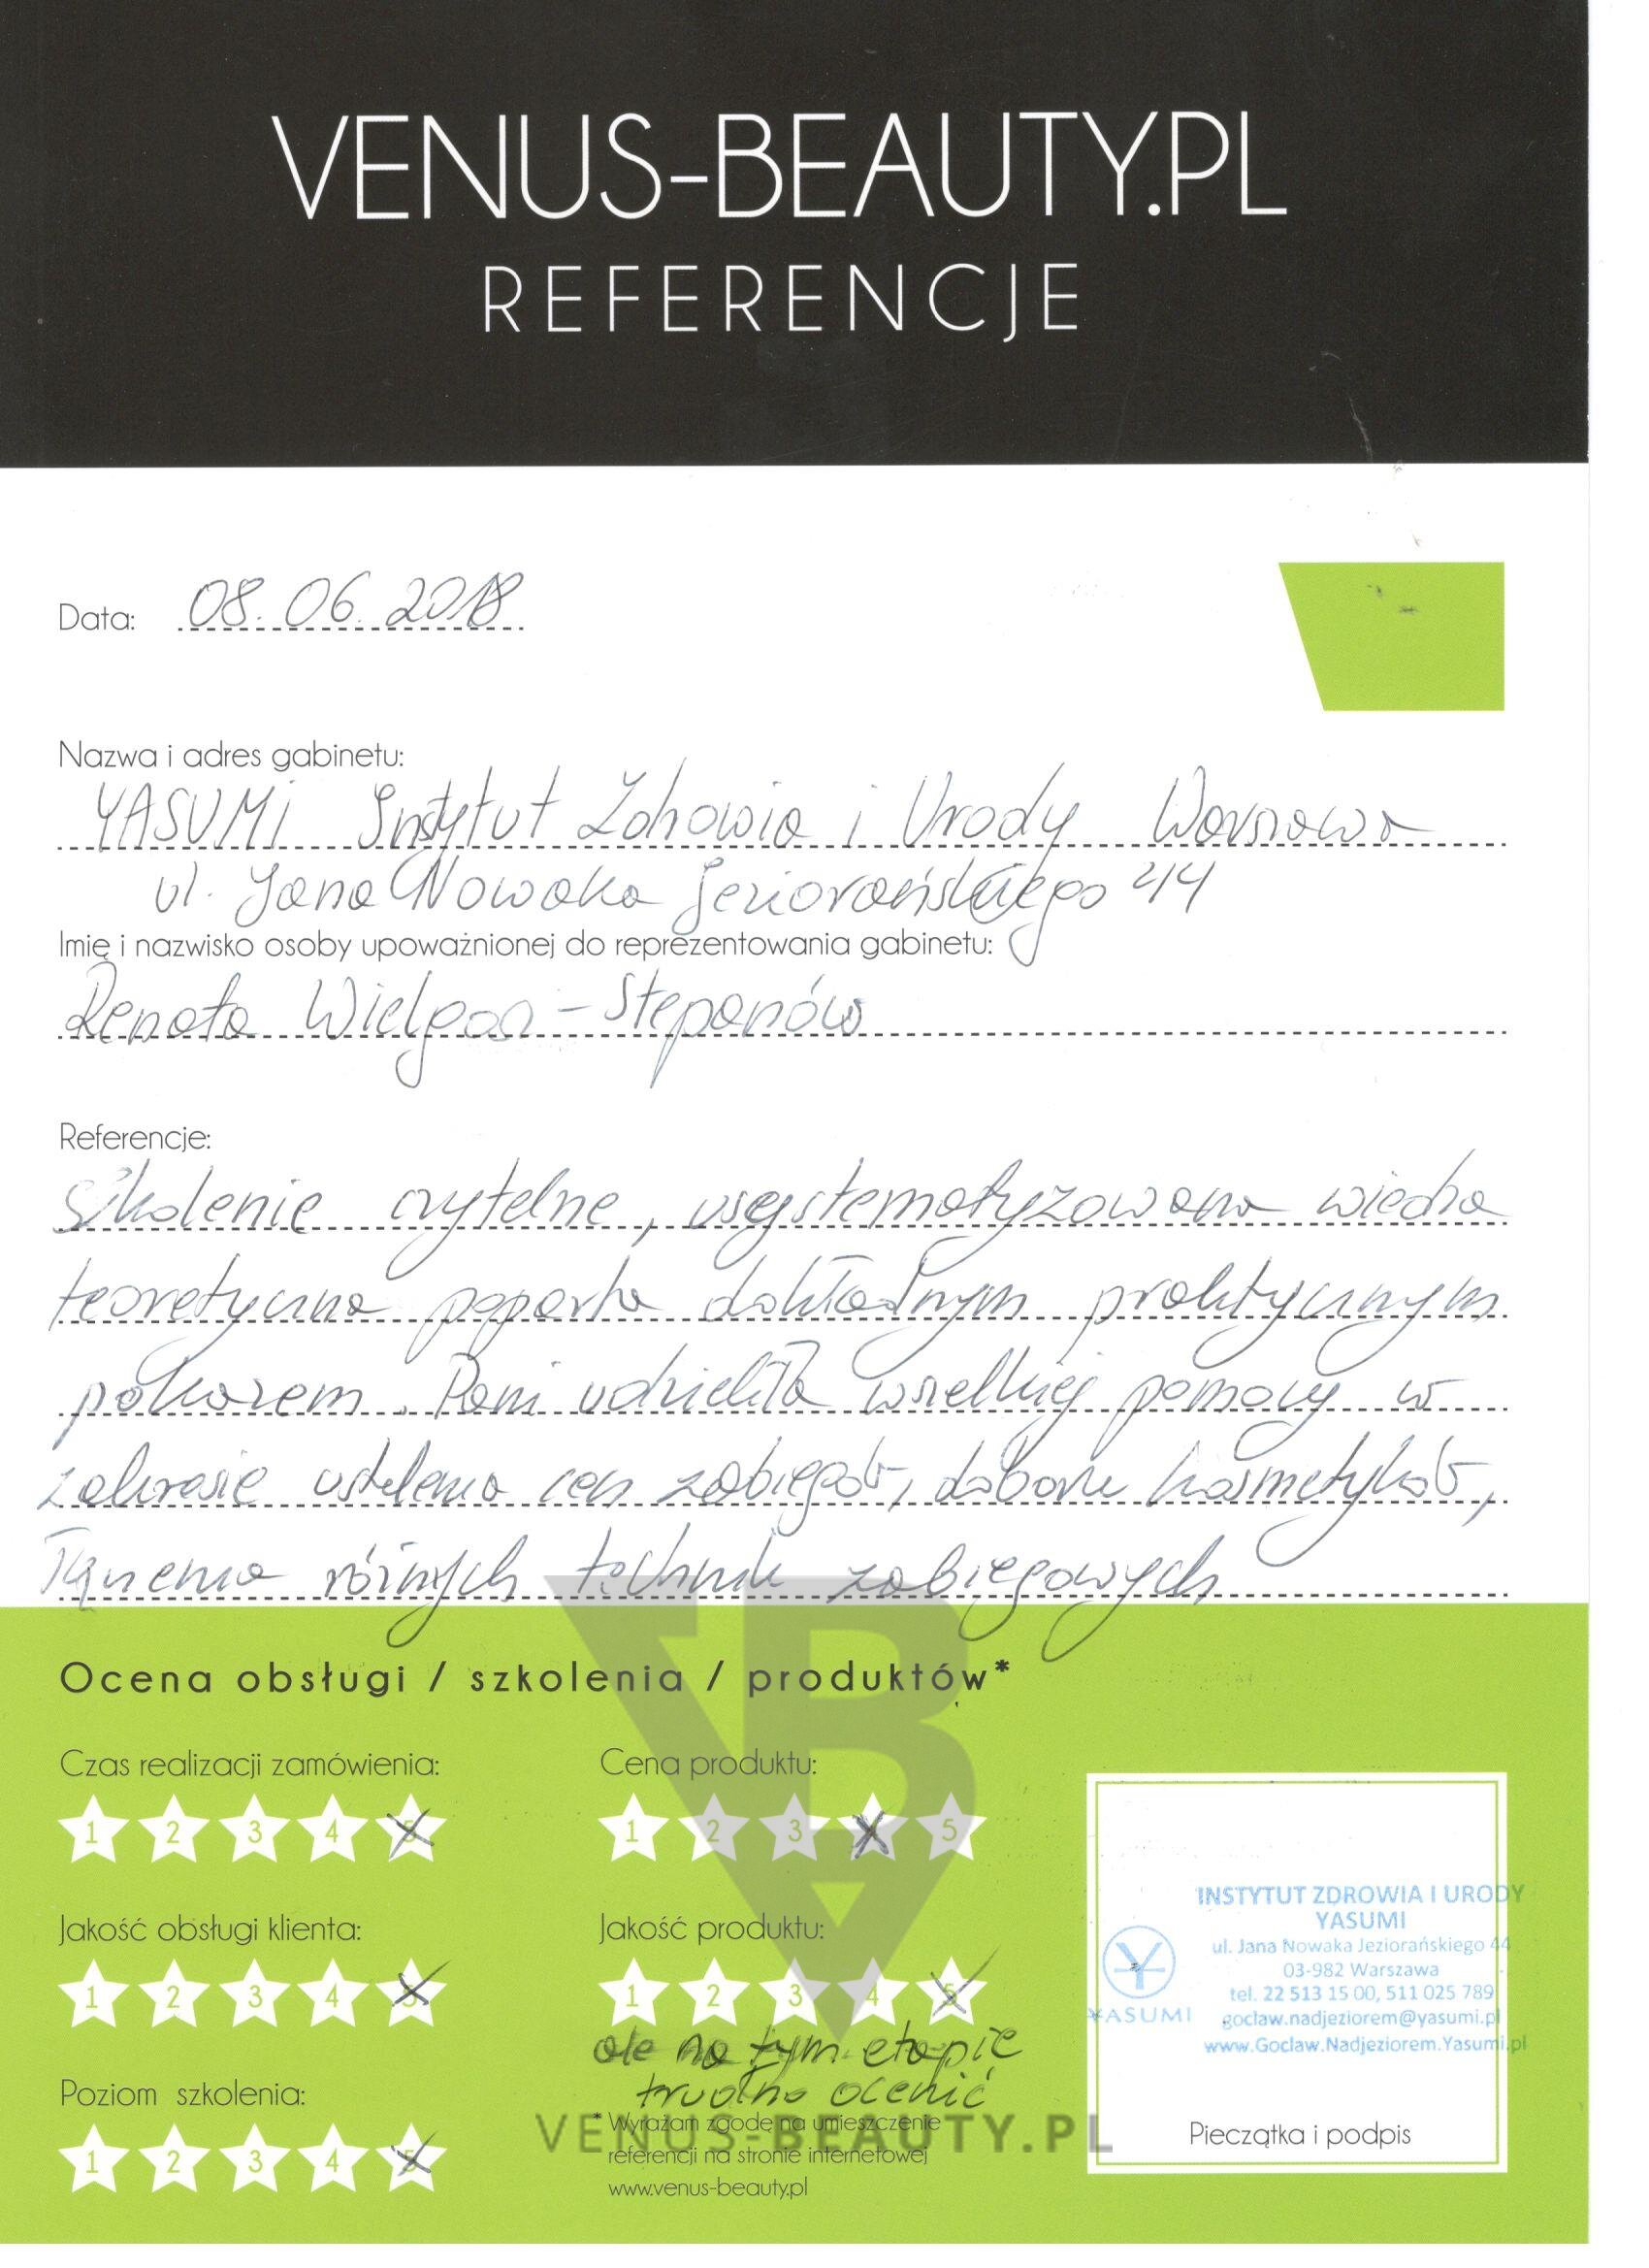 VENUS-BEAUTY.PL
REFERENCJE
Data: 08.06.2018
Nazwa i adres gabinetu:
YASUMI Instytut Zdrowia i Urody Warszawa
ul. Jana Nowaka Jeziorańskiego 44
Imię i nazwisko osoby upoważnionej do reprezentowania gabinetu:
Renata Stepanów
Referencje:
Szkolenie czytelne, usystematyzowana wiedza
teoretyczna poparta dokładnym praktycznym
pokazem. Pani udzieliła wszelkiej pomocy w
zakresie ustalenia cen zabiegów, doboru kosmetyków,
łączenia różnych technik zabiegowych
Ocena obsługi / szkolenia / produktów*
Czas realizacji zamówienia:
1 2 3 4 5
Cena produktu:
1 2 3 5
Jakość obsługi klienta:
1 2 3 4 5
Jakość produktu:
1 2 3 4 5
ale na tym etapie
trudno ocenić
Poziom szkolenia:
1 2 3 4 5
* Wyrażam zgodę na umieszczenie
referencji na stronie internetowej
www.venus-beauty.pl
VENUS-BEAUTY.PL
INSTYTUT ZDROWIA I URODY
YASUMI
ul. Jana Nowaka Jeziorańskiego 44
03-982 Warszawa
tel. 22 513 15 00, 511 025 789
goclaw.nadjeziorem@yasumi.pl
www.Goclaw.Nadjeziorem.Yasumi.pl
YASUMI
Pieczątka i podpis